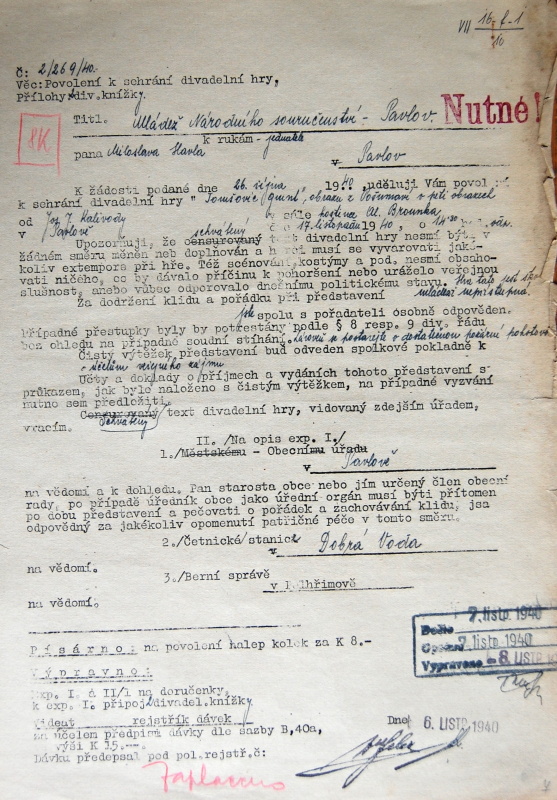 VII 16-f-1
10
Č: 2/269/40.
Věc: Povolení k sehrání divadelní hry,
Přílohy: 2 div. knížky.
Nutné!
Titl. Mládež Národního souručenství - Pavlov
8K
k rukám - jednatele
pana Miloslava Havla
v Pavlov
K žádosti podané dne 26. října 1940, uděluji Vám povol
k sehrání divadelní hry "
v pěti obrazech
od Jos. J. Kalivody v sále hostince Al. Brounka
v Pavlově dne 17. listopadu 1940, o
schválený
Upozorňuji, že censurovaný text divadelní hry nesmí býti v
žádném směru měněn neb doplňován a herci musí se vyvarovati jaké-
koliv extempora při hře. Též scénování, kostýmy a pod. nesmí obsaho-
vati ničeho, co by dávalo příčinu k pohoršení nebo uráželo veřejnou
slušnost, anebo vůbec odporovalo dnešnímu politickému stavu. Hra tato jest
mládeži nepřístupná.
Za dodržení klidu a pořádku při představení
jste spolu s pořadateli osobně odpověden.
Případné přestupky byly by potrestány podle § 8 resp. 9 div. řádu
bez ohledu na případné soudní stíhání. Zároveň se postarejte o dostatečnou požární pohotovost.
Čistý výtěžek představení buď odveden spolkové pokladně k
účelům veřejného zájmu.
Účty a doklady o příjmech a vydáních tohoto představení s
průkazem, jak bylo naloženo s čistým výtěžkem, na případné vyzvání
nutno sem předložiti.
Censurovaný text divadelní hry, vidovaný zdejším úřadem,
Schválený
vracím.
II. /Na opis exp. I./
1./Městskému - Obecnímu úřadu
v Pavlově
na vědomí a k dohledu. Pan starosta obce nebo jím určený člen obecní
rady, po případě úředník obce jako úřední orgán musí býti přítomen
po dobu představení a pečovati o pořádek a zachovávání klidu, jsa
odpovědný za jakékoliv opomenutí patřičné péče v tomto směru.
2./Četnické/stanice
v Dobrá Voda
na vědomí.
3./Berní správě
v Pelhřimově
na vědomí.
Písárno: na povolení nalep kolek za K 8.-
Výpravno:
Exp. I. a II/1 na doručenky,
k exp. I. připoj 2 divadel. knížky.
Videat rejstřík dávek
za účelem předpisu dávky dle sazby B,40a,
výši K 15.--
Dávku předepsal pod pol. rejstř. č:
Zaplaceno
Došlo 7. listp. 1940
Opsáno 7. listp 1940
Vypraveno 8. LISTP. 1940
Dne 6. LISTP. 1940